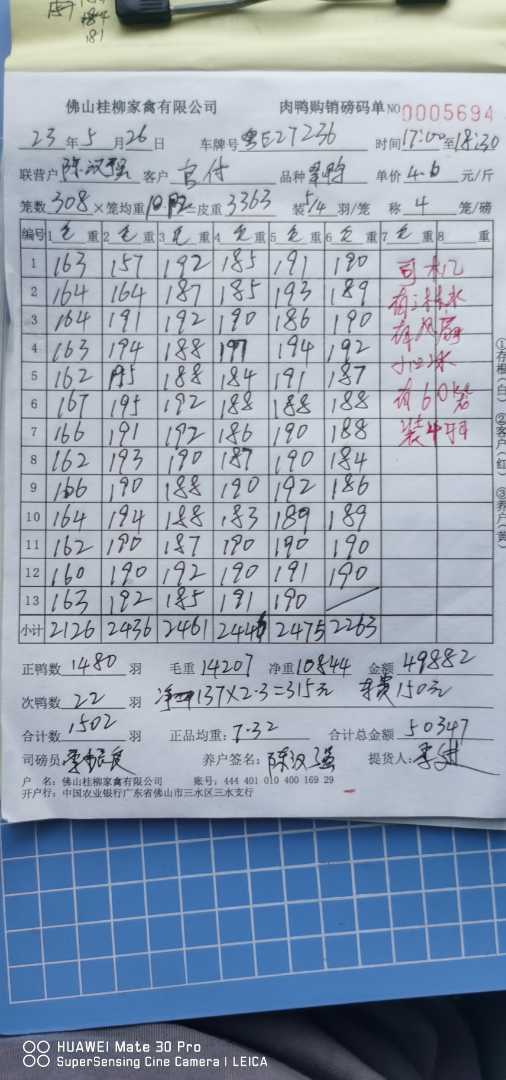 184
181
佛山桂柳家禽有限公司 肉鸭购销磅码单 NO 0005694
23 年 5 月 26 日 车牌号 粤E27236 时间 17:00 至 18:30
联营户 陈汉强 客户 官付 品种 单价 4.6 元/斤
笼数 308 ×笼均重 =皮重 3363 装 5/4 羽/笼 称 4 笼/磅
编号 1 毛 重 2 毛 重 3 毛 重 4 毛 重 5 毛 重 6 毛 重 7 毛 重 8 重
1 163 157 192 185 191 190 司机
2 164 164 187 185 193 189
3 164 191 192 190 186 190
4 163 194 188 197 194 192
5 162 195 188 184 191 187
6 167 195 192 188 188 188 有60笼
7 166 191 192 186 190 188 装4羽
8 162 193 190 187 190 184
9 166 190 188 190 192 186
10 164 194 188 183 189 189
11 162 190 187 190 190 190
12 160 190 192 190 191 190
13 163 192 185 191 190
小计 2126 2436 2461 2446 2475 2263
①存根(白) ②客户(红) ③养户(黄)
正鸭数 1480 羽 毛重 14207 净重 10844 金额 49882
次鸭数 22 羽 净重137×2.3=315元 车费150元
合计数 1502 羽 正品均重: 7.32 合计总金额 50347
司磅员 养户签名: 陈汉强 提货人:
户 名: 佛山桂柳家禽有限公司 账号: 444 401 010 400 169 29
开户行: 中国农业银行广东省佛山市三水区三水支行
HUAWEI Mate 30 Pro
SuperSensing Cine Camera | LEICA